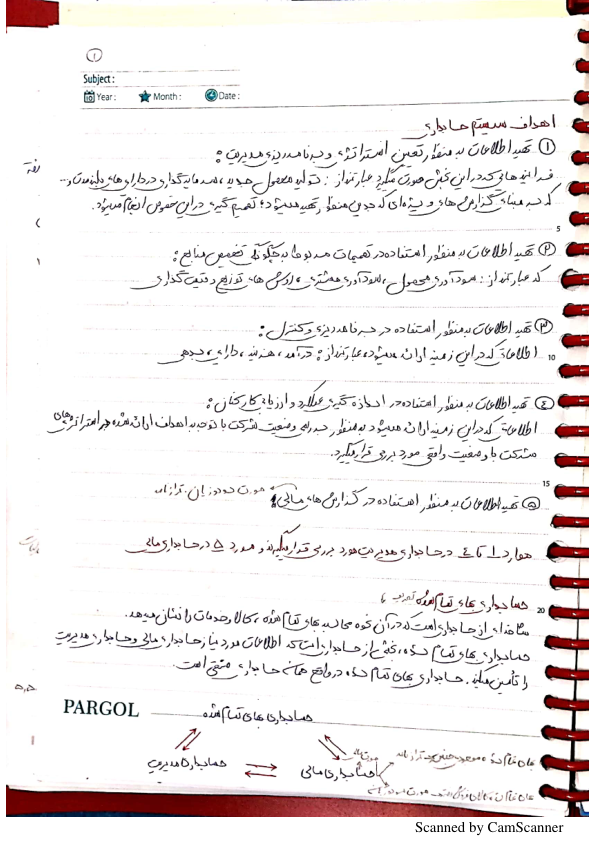 ۱
Subject:
Year: Month: Date:
اهداف سیستم حسابداری
① تهیه اطلاعات به منظور تعیین استراتژی و برنامه ریزی مدیریت:
فرآیندهایی که در این بخش صورت میگیرد عبارتند از: تولید محصول جدید، سرمایه گذاری در دارایی های بلندمدت و...
که بر مبنای گزارش های ویژه ای که بدین منظور تهیه میشود، تصمیم گیری در این خصوص انجام میشود.
5
② تهیه اطلاعات به منظور استفاده در تصمیمات مربوط به چگونگی تخصیص منابع:
که عبارتند از: سودآوری محصول، سودآوری مشتری، روش های توزیع و قیمت گذاری
③ تهیه اطلاعات به منظور استفاده در برنامه ریزی و کنترل:
10 اطلاعاتی که در این زمینه ارائه میشود، عبارتند از: درآمد، هزینه، دارایی، بدهی
④ تهیه اطلاعات به منظور استفاده در اندازه گیری عملکرد و ارزیابی کارکنان:
اطلاعاتی که در این زمینه ارائه میشود به منظور بررسی وضعیت شرکت با توجه به اهداف ارائه شده در استراتژی های
شرکت با وضعیت واقعی مورد بررسی قرار میگیرد.
15
⑤ تهیه اطلاعات به منظور استفاده در گزارش های مالی: صورت سود و زیان، ترازنامه
موارد ۱ تا ۴ در حسابداری مدیریت مورد بررسی قرار میگیرند و مورد ۵ در حسابداری مالی
حسابداری بهای تمام شده تعریف
20
شاخه ای از حسابداری است که در آن نحوه محاسبه بهای تمام شده، کالا و خدمات را نشان میدهد.
حسابداری بهای تمام شده، بخشی از حسابداری است که اطلاعات مورد نیاز حسابداری مالی و حسابداری مدیریت
را تأمین میکند. حسابداری بهای تمام شده در واقع همان حسابداری صنعتی است.
PARGOL
حسابداری بهای تمام شده
حسابداری مدیریت
حسابداری مالی
Scanned by CamScanner